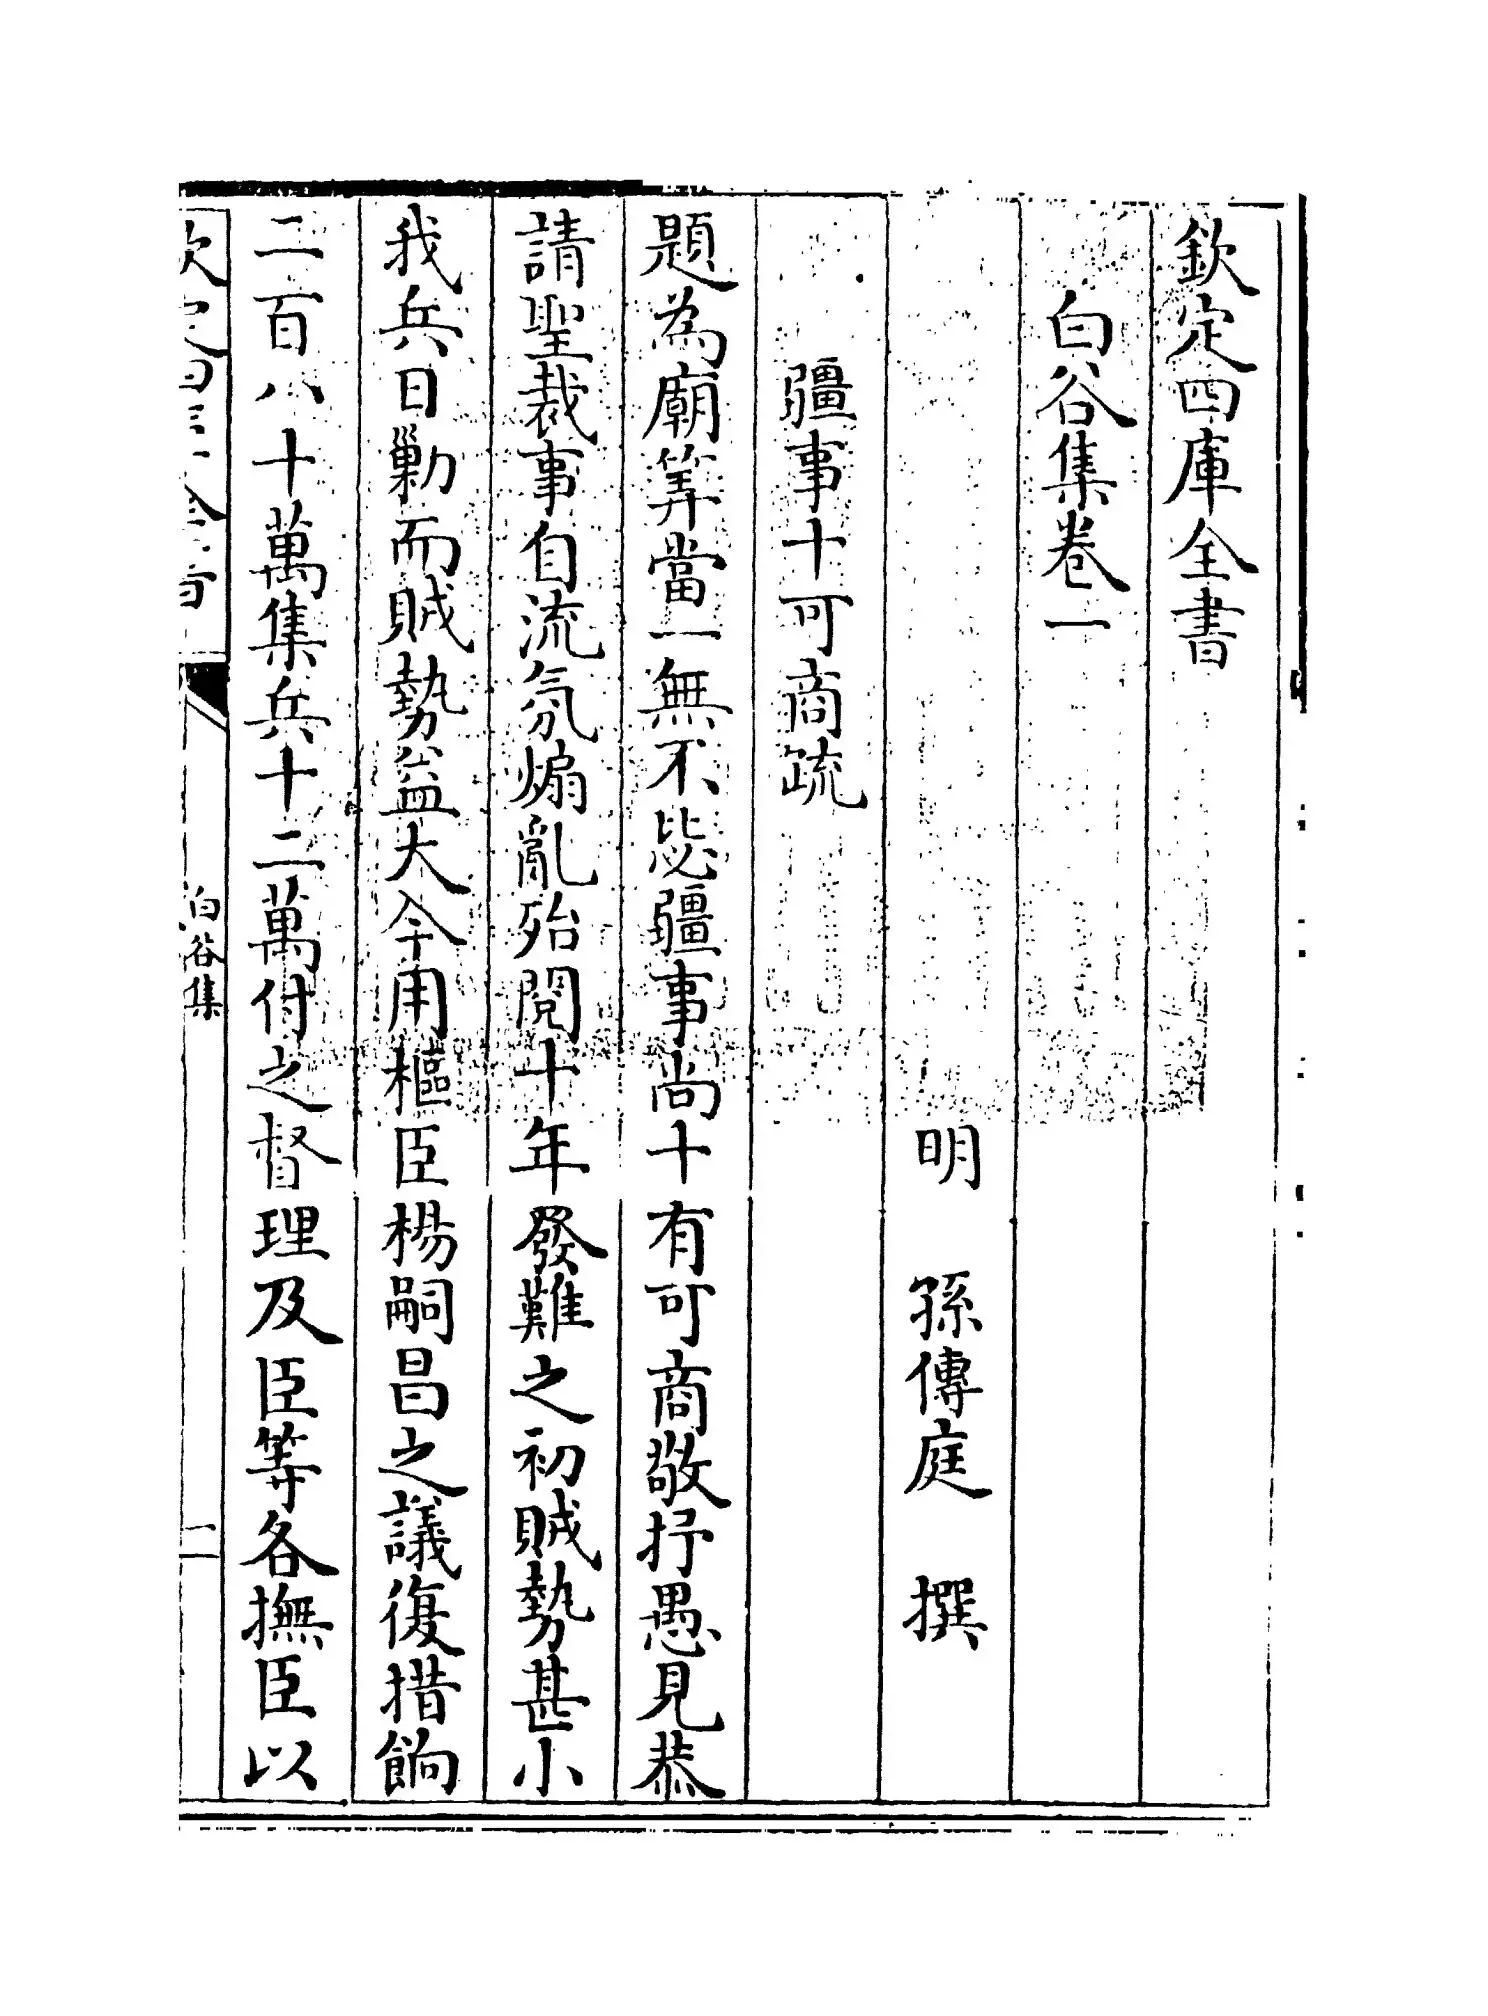 欽定四庫全書
白谷集卷一
明 孫傳庭 撰
疆事十可商疏
題為廟筭當一無不毖疆事尚十有可商敬抒愚見恭
請聖裁事自流氛煽亂殆閱十年發難之初賊勢甚小
我兵日勦而賊勢益大今用樞臣楊嗣昌之議復措餉
二百八十萬集兵十二萬付之督理及臣等各撫臣以
欽定四庫全書
白谷集
一